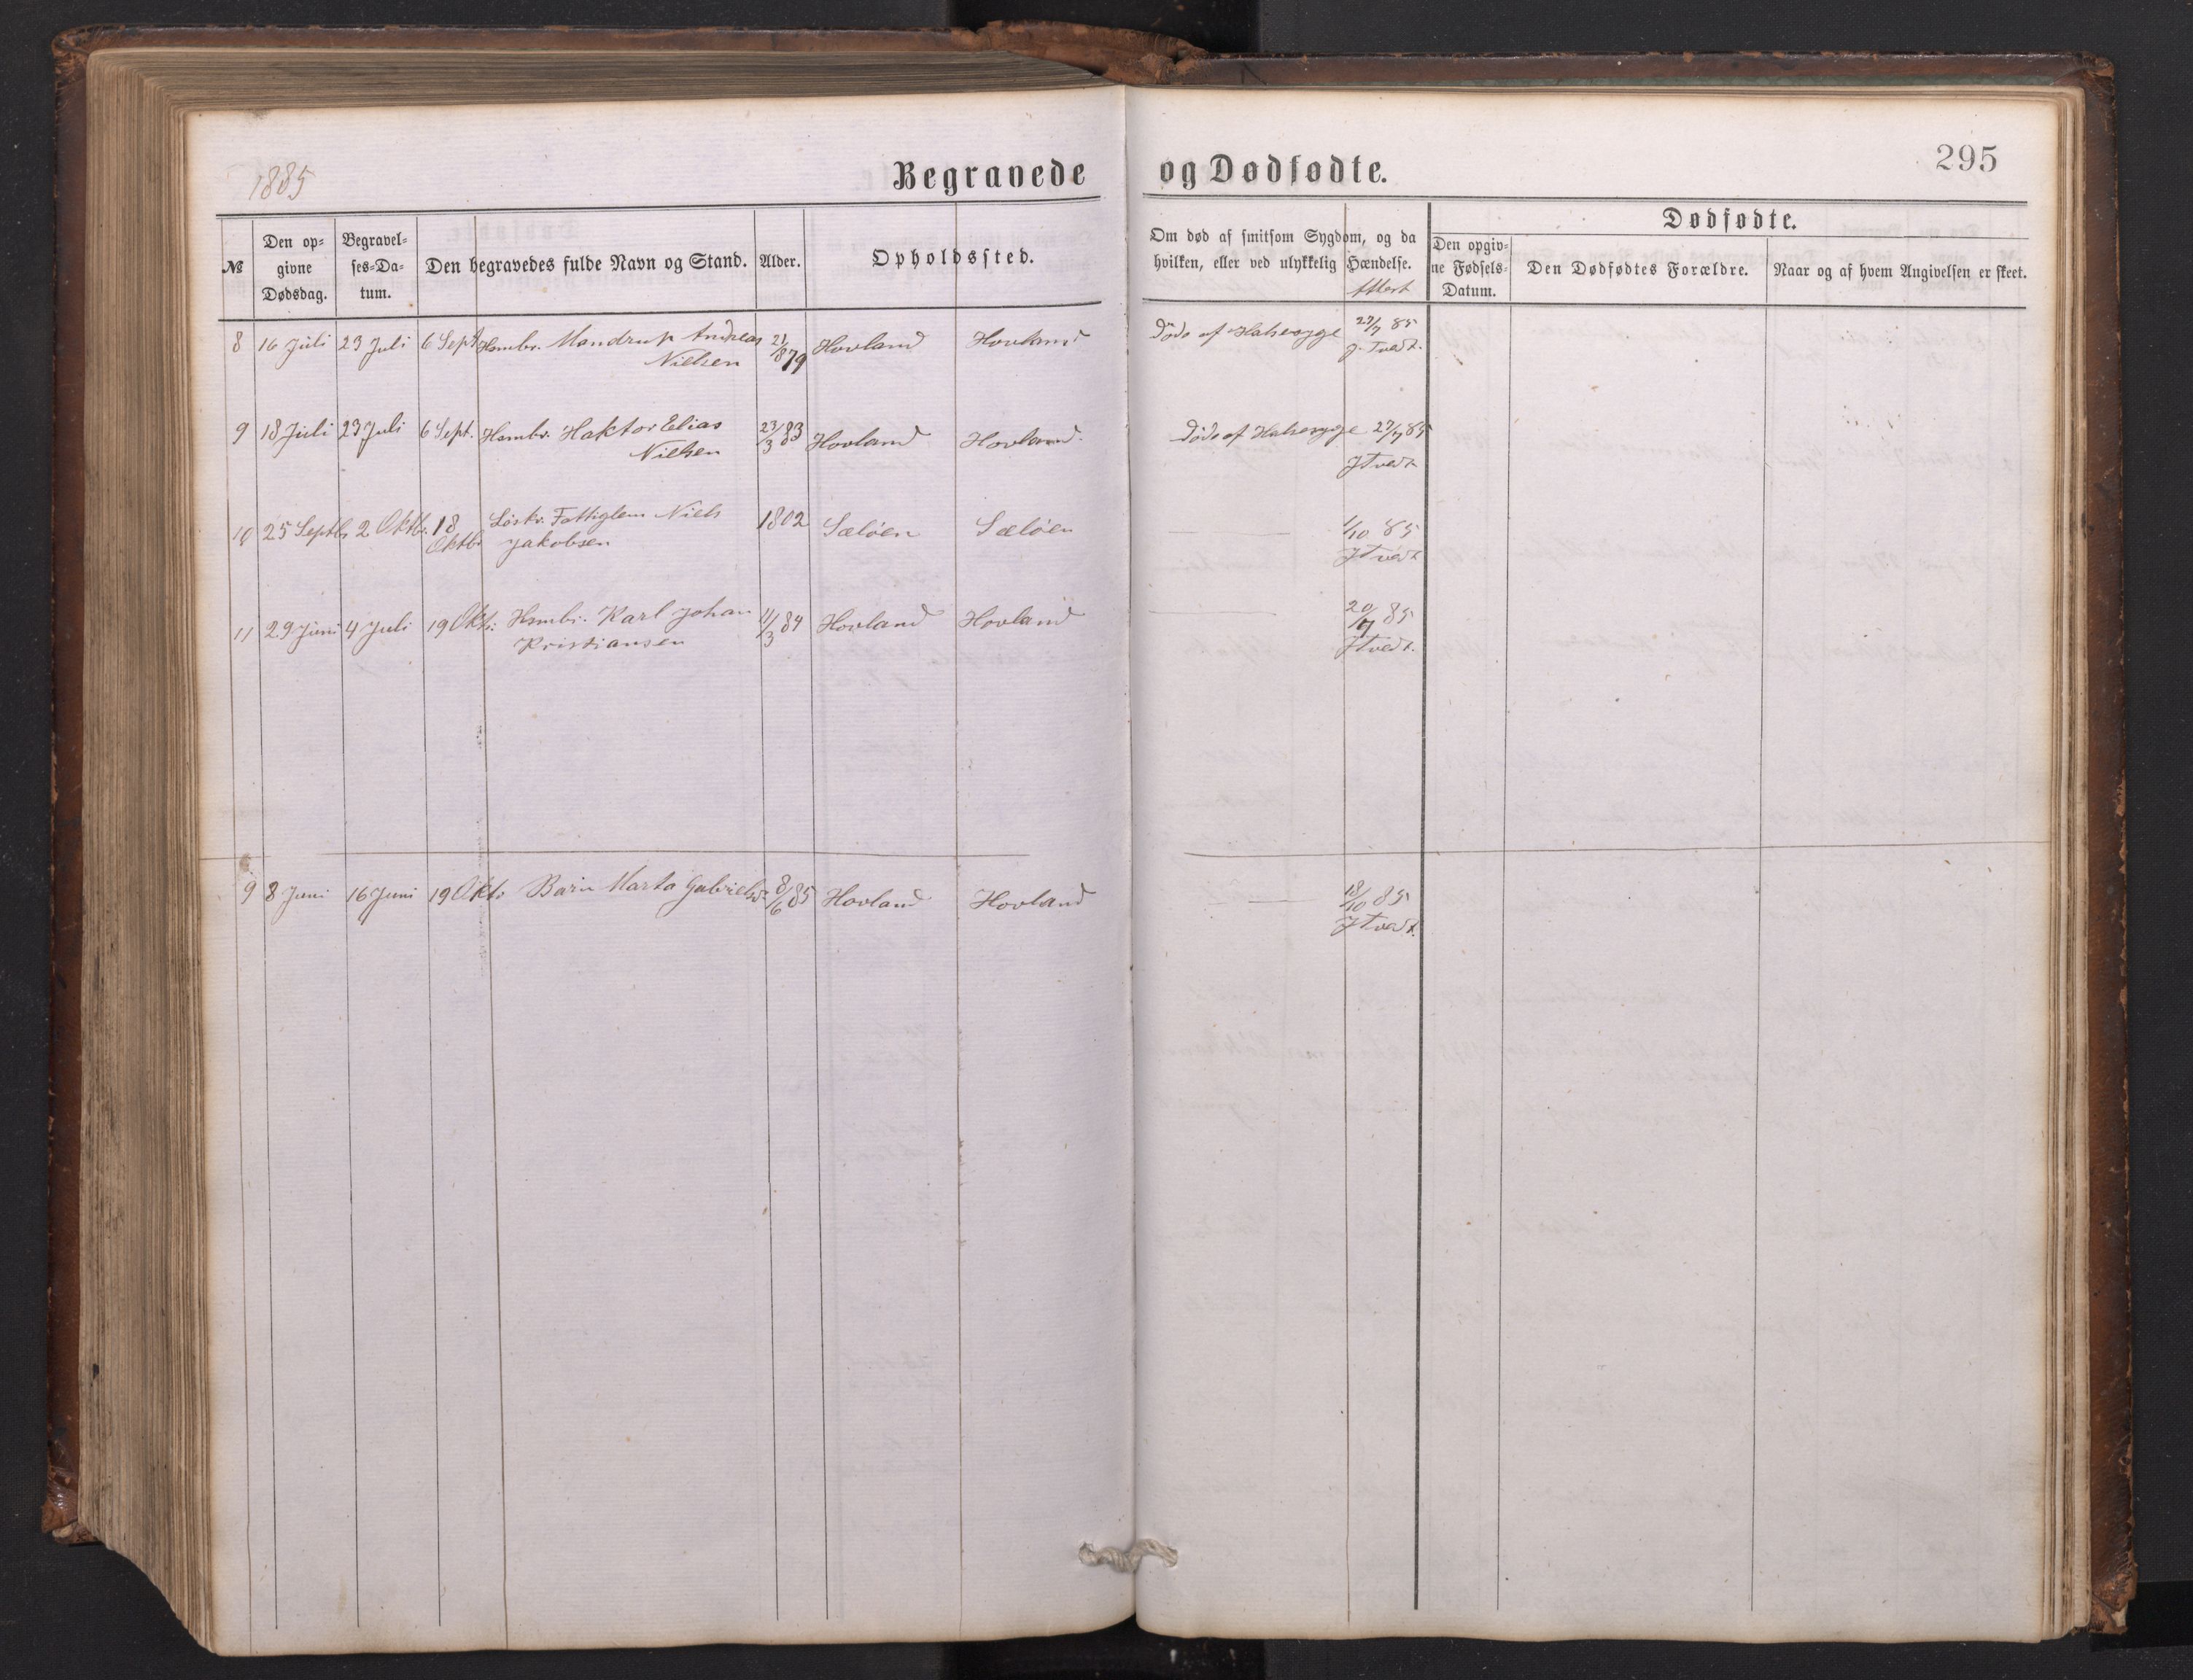 1885
Begravede og Dødfødte.
295
№
Den opgivne Dødsdag.
Begravelses-Datum.
Den begravedes fulde Navn og Stand.
Alder.
Opholdssted.
Om død af smitsom Sygdom, og da
hvilken, eller ved ulykkelig Hændelse.
Attest
Dødfødte.
Den opgivne Fødsels-Datum.
Den Dødfødtes Forældre.
Naar og af hvem Angivelsen er skeet.
8 16 Juli 23 Juli 6 Sept Hsmbr. Mandrup Andreas 21/8 79 Hovland Hovland Døde af Halssyge 27/7 85
Nielsen J. Tvedt.
9 18 Juli 23 Juli 6 Sept. Hsmbr. Haktor Elias 23/3 83 Hovland Hovland. Døde af Halssyge 27/7 85
Nielsen JTvedt
10 25 Septbr 2 Oktbr. 18 Løskr. Fattiglem Niels 1802 Sæløen Sæløen 1/10 85
Oktbr Jakobsen JTvedt
11 29 Juni 4 Juli 19 Oktr. Hsmbr. Karl Johan 11/3 84 Hovland Hovland 20/7 85
Kristiansen JTvedt.
9 8 Juni 16 Juni 19 Oktr Barn Marta Gabrielsdr 8/6 85 Hovland Hovland 18/10 85
JTvedt.